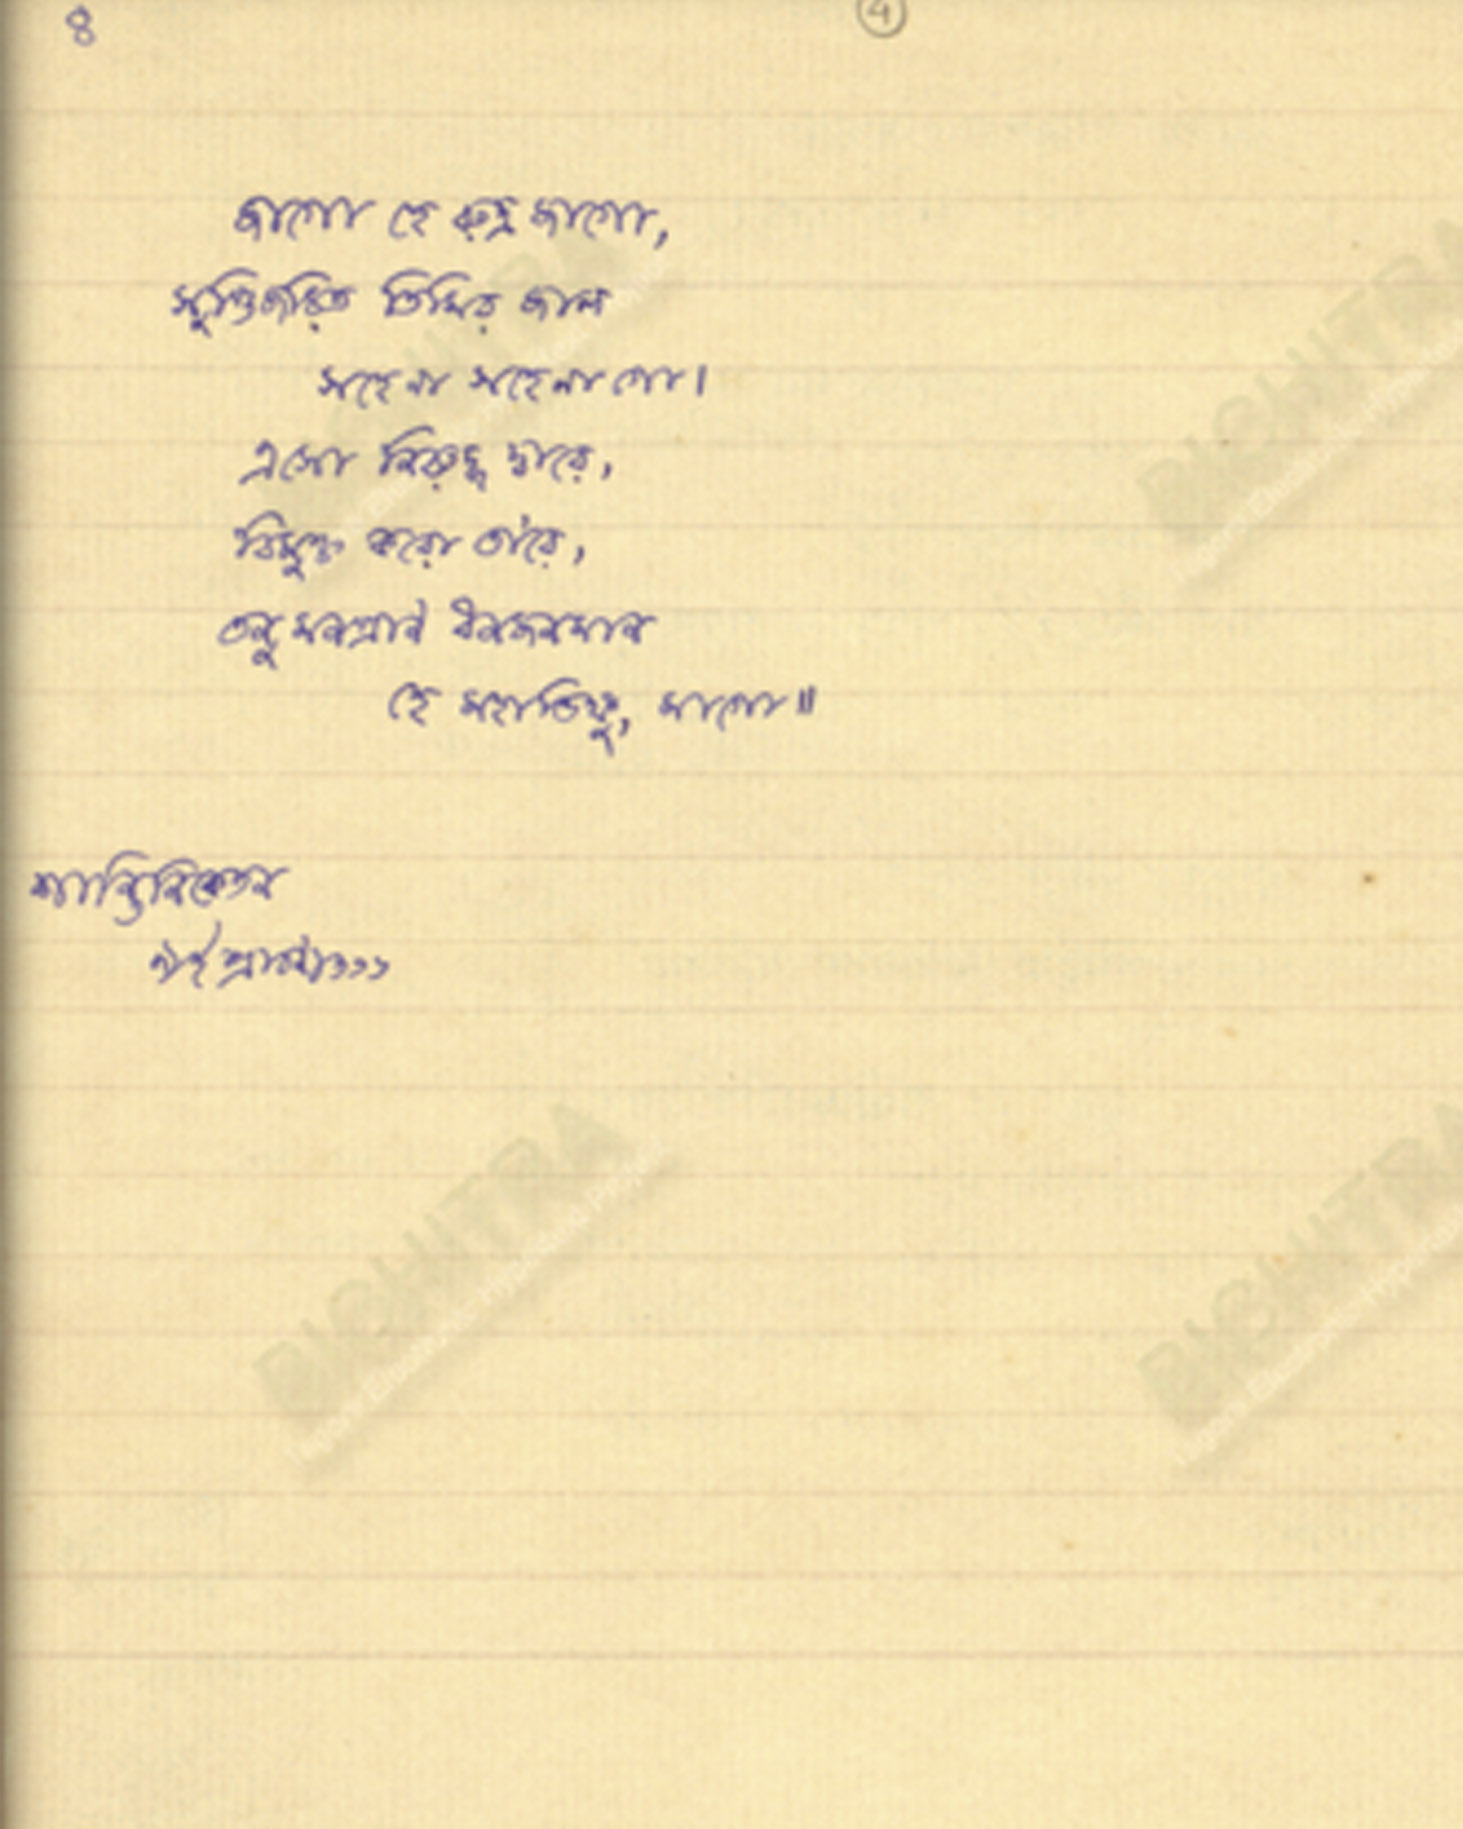 ৪
4
জাগো হে রুদ্র জাগো,
সুপ্তিজড়িত তিমির জাল
সহেনা সহেনা গো।
এসো নিরুদ্ধ দ্বারে,
বিমুক্ত করো তা'রে,
তনুমনপ্রাণ ধনজনমান
হে মহাভিক্ষু, মাগো॥
শান্তিনিকেতন
BICHITRA
BICHITRA
BICHITRA
BICHITRA